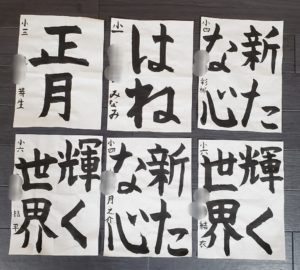 小三
正月
芽生
小一
はね
みなみ
小四
新た
な心
小六
輝く
世界
小四
新た
な心
月之介
小六
輝く
世界
結衣